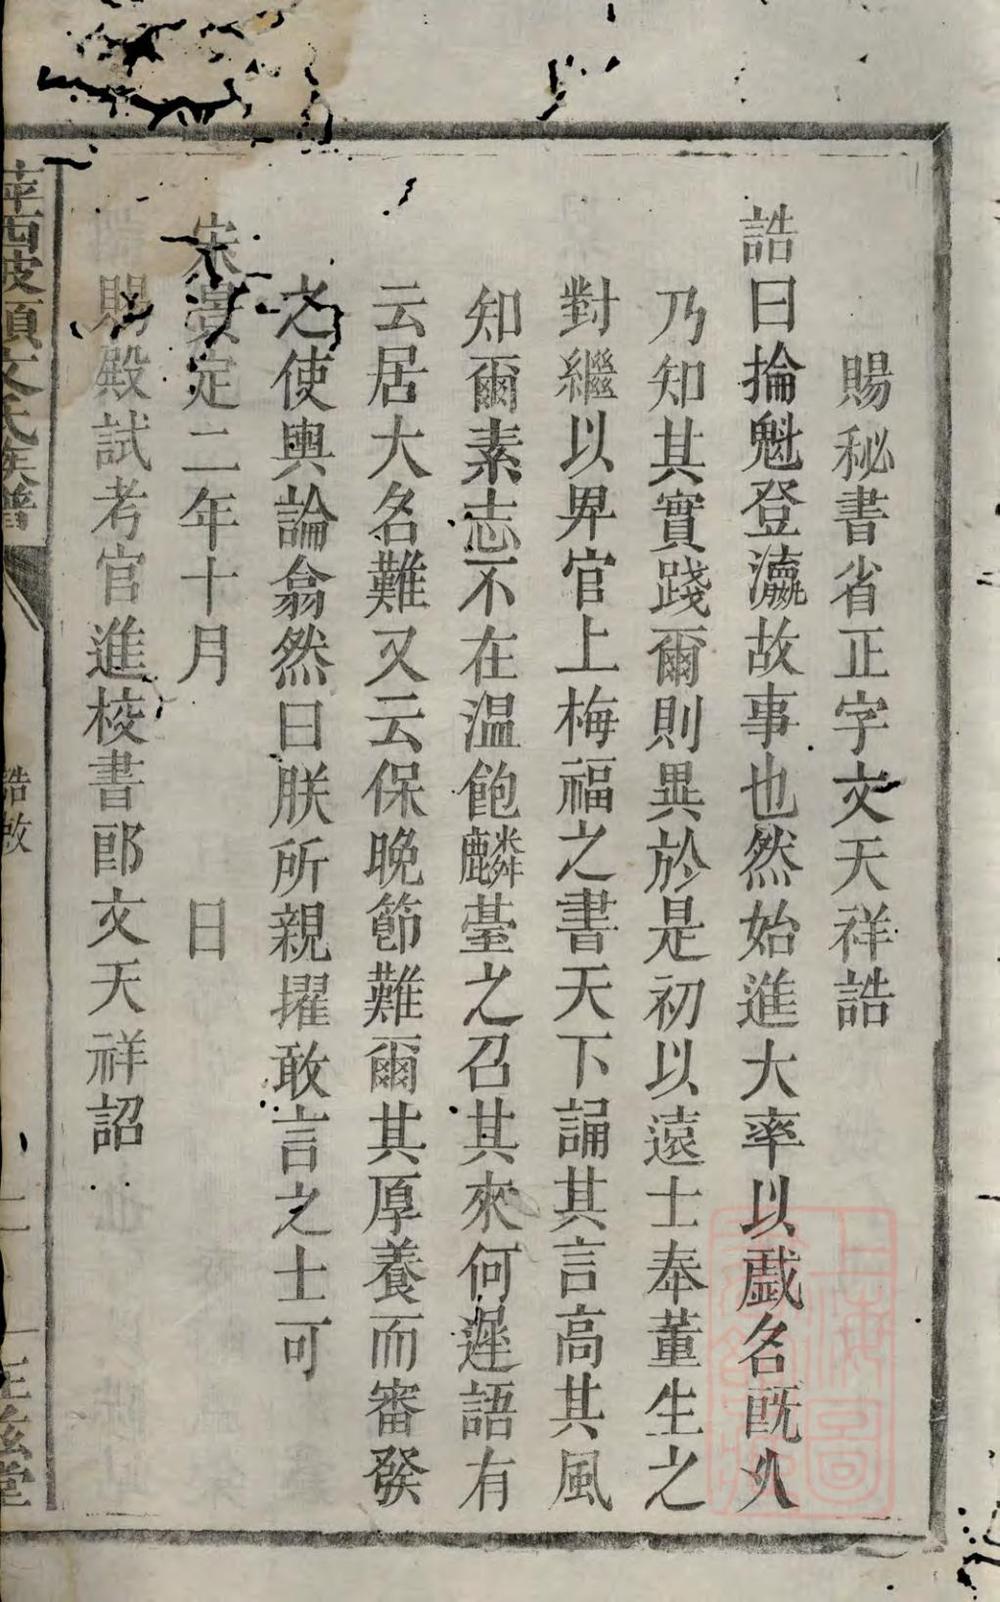 賜秘書省正字文天祥誥
誥曰掄魁登瀛故事也然始進大率以戯名旣久
乃知其實踐爾則異於是初以遠士奉董生之
對繼以畀官上梅福之書天下誦其言高其風
知爾素志不在溫飽麟䑓之召其來何遲語有
云居大名難又云保晚節難爾其厚養而審發
之使輿論翕然曰朕所親擢敢言之士可
宋景定二年十月 日
賜殿試考官進校書郎文天祥詔
萍西坡頭文氏族譜 誥敕 二 正弦堂